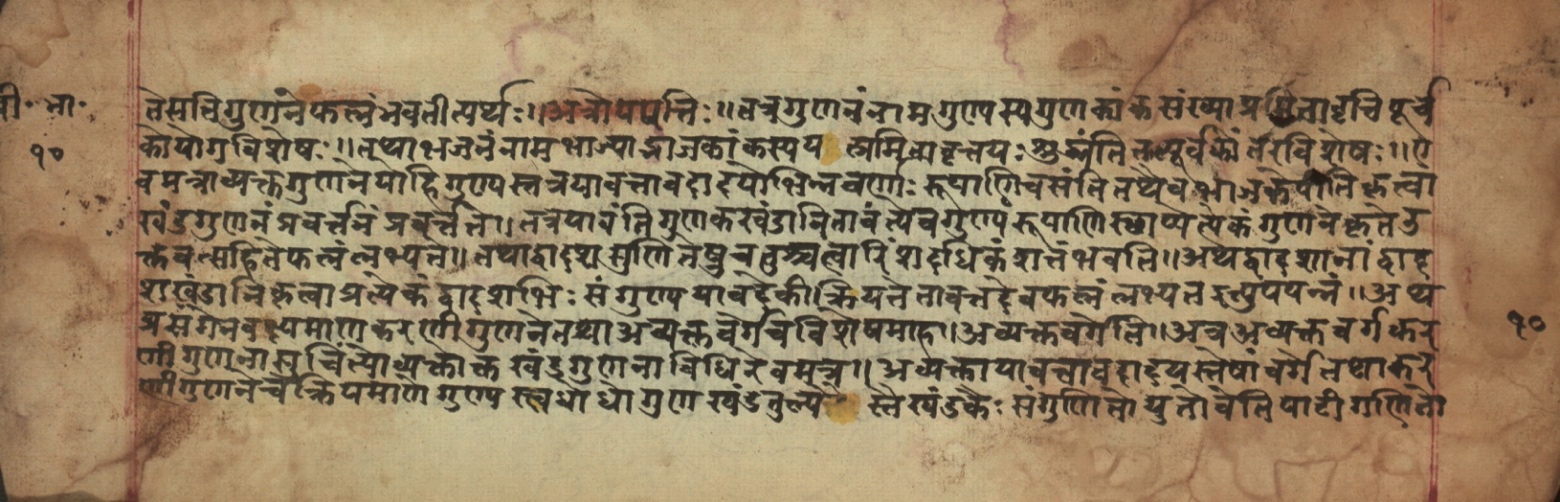 वी. भा.
१०
ते सति गुणने फलं भवतीत्यर्थः ॥ अत्रोपपत्तिः ॥ तत्र गुणनं नाम गुण्यस्य गुणकांक संख्या प्रमितावृत्ति पूर्व
को योग विशेषः ॥ तथा भजनं नाम भाज्याद्भाजकांकस्य य त्प्रमितावृत्तयः शुद्ध्यंति तत्पूर्वकों तर विशेषः ॥ ए
वमत्राव्यक्त गुणने पाहि गुण्यस्तत्र यावत्तावदादयो भिन्न वर्णाः रूपाणि च संति तथैव भाजकेपीति कृत्वा
खंड गुणनं प्रवर्त्तनं प्रवर्त्तते ॥ तत्र यावंति गुणक खंडानि तावंत्येव गुण्य रूपाणि स्थाप्य प्रत्येकं गुणने कृते उ
क्तवत्सहिते फलं लभ्यते ॥ तथा द्वादश सु गुणितेषु चतुश्चत्वारिंशदधिकं शतं भवति ॥ अथ द्वादशानां द्वाद
श खंडानि कृत्वा प्रत्येकं द्वादशभिः संगुण्य यावदेकी क्रियते तावत्तदेव फलं लभ्यत इत्युपपन्नं ॥ अथ
प्रसंगेन वक्ष्यमाण करणी गुणने तथा अव्यक्त वर्गे च विशेषमाह ॥ अव्यक्त वर्गेति ॥ अत्र अव्यक्त वर्ग कर
णी गुणनासु चिंत्यो व्यक्तोक्त खंड गुणना विधिरेवमत्र ॥ अव्यक्ता यावत्तावदादयस्तेषां वर्गे तथा कर
णी गुणने च क्रियमाणे गुण्यस्त्वधोधो गुण खंड तुल्य स्तैः खंडकैः संगुणितो युतो वेति पाटी गणितो
१०